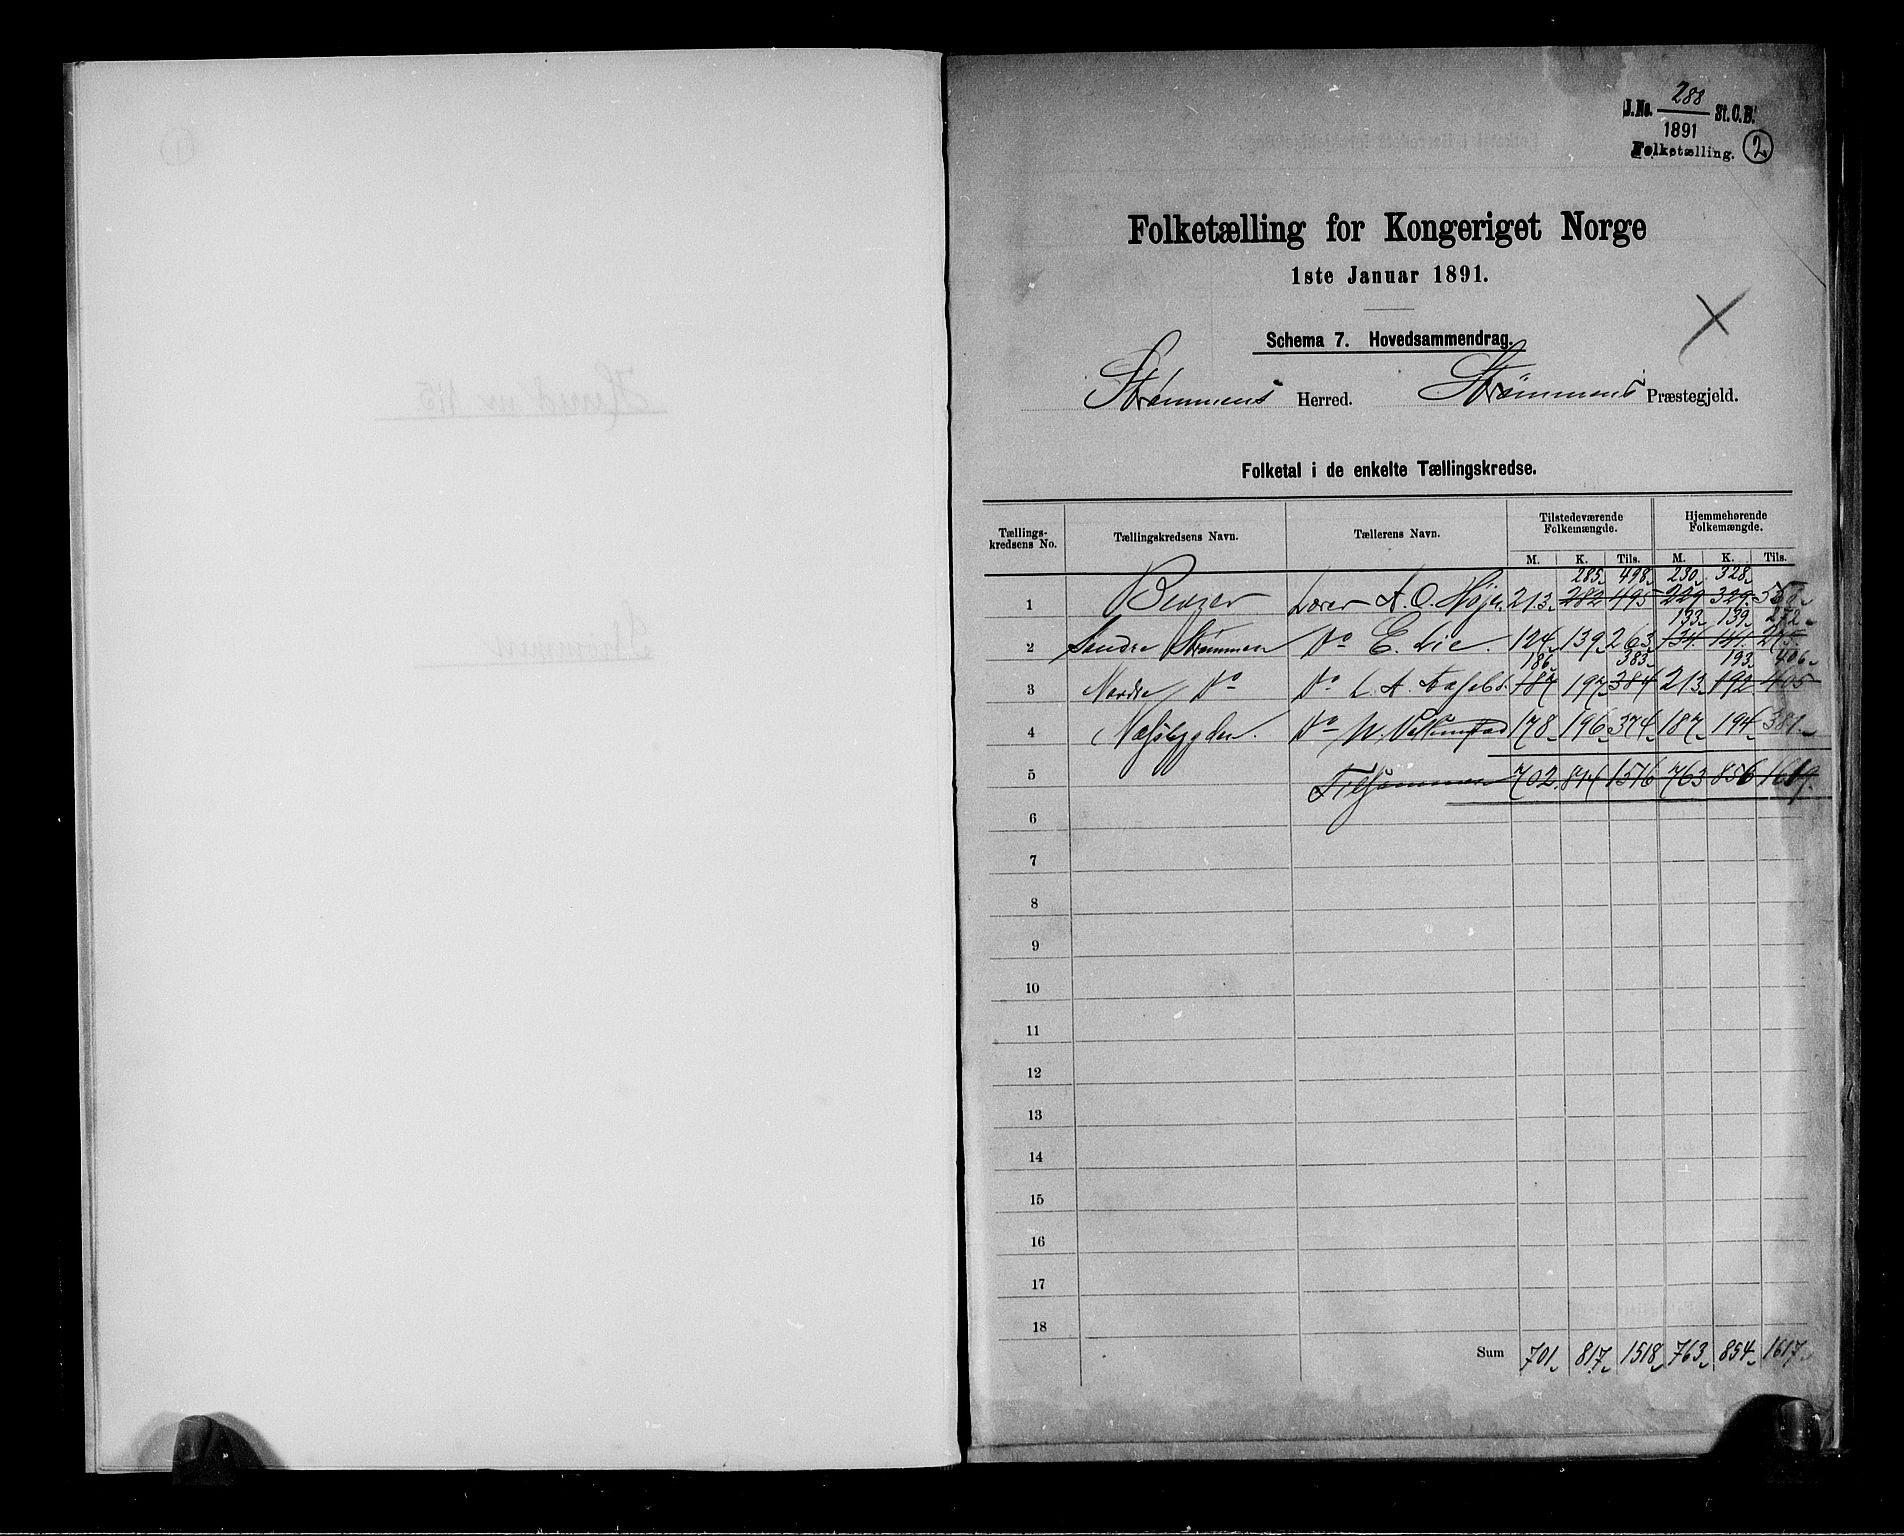 J.No. 288 St.C.B.
1891
Folketælling. 2
Folketælling for Kongeriget Norge
1ste Januar 1891.
Schema 7. Hovedsammendrag.
Strømmens Herred. Strømmens Præstegjeld.
Folketal i de enkelte Tællingskredse.
Tællings-kredsens No. Tællingskredsens Navn. Tællerens Navn. Tilstedeværende Folkemængde. Hjemmehørende Folkemængde.
M. K. Tils. M. K. Tils.
285 498 230 328
1 Berger Lærer A. O. Højer 213 282 495 229 329 558
133 139 272
2 Søndre Strømmen Do E. Lie. 124 139 263 134 141 275
186 383 193 406
3 Nordre Do Do L. A. 187 197 384 213 192 405
4 Næsbygden. Do 178 196 374 187 194 381
5 Tilsammen 702 814 1516 763 856 1619
6
7
8
9
10
11
12
13
14
15
16
17
18
Sum 701 817 1518 763 854 1617